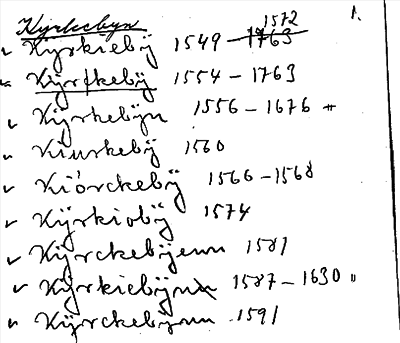 Kyrkebyn 1.
Kÿrkiebÿ 1549 – 1763 1572
Kÿrkebÿ 1554 – 1763
Kÿrkebÿn 1556 – 1676
Kiurkebÿ 1560
Kiörckebÿ 1566 – 1568
Kÿrkiobÿ 1574
Kÿrckebÿenn 1581
Kÿrkiebÿnn 1587 – 1630
Kÿrckebÿnn 1591